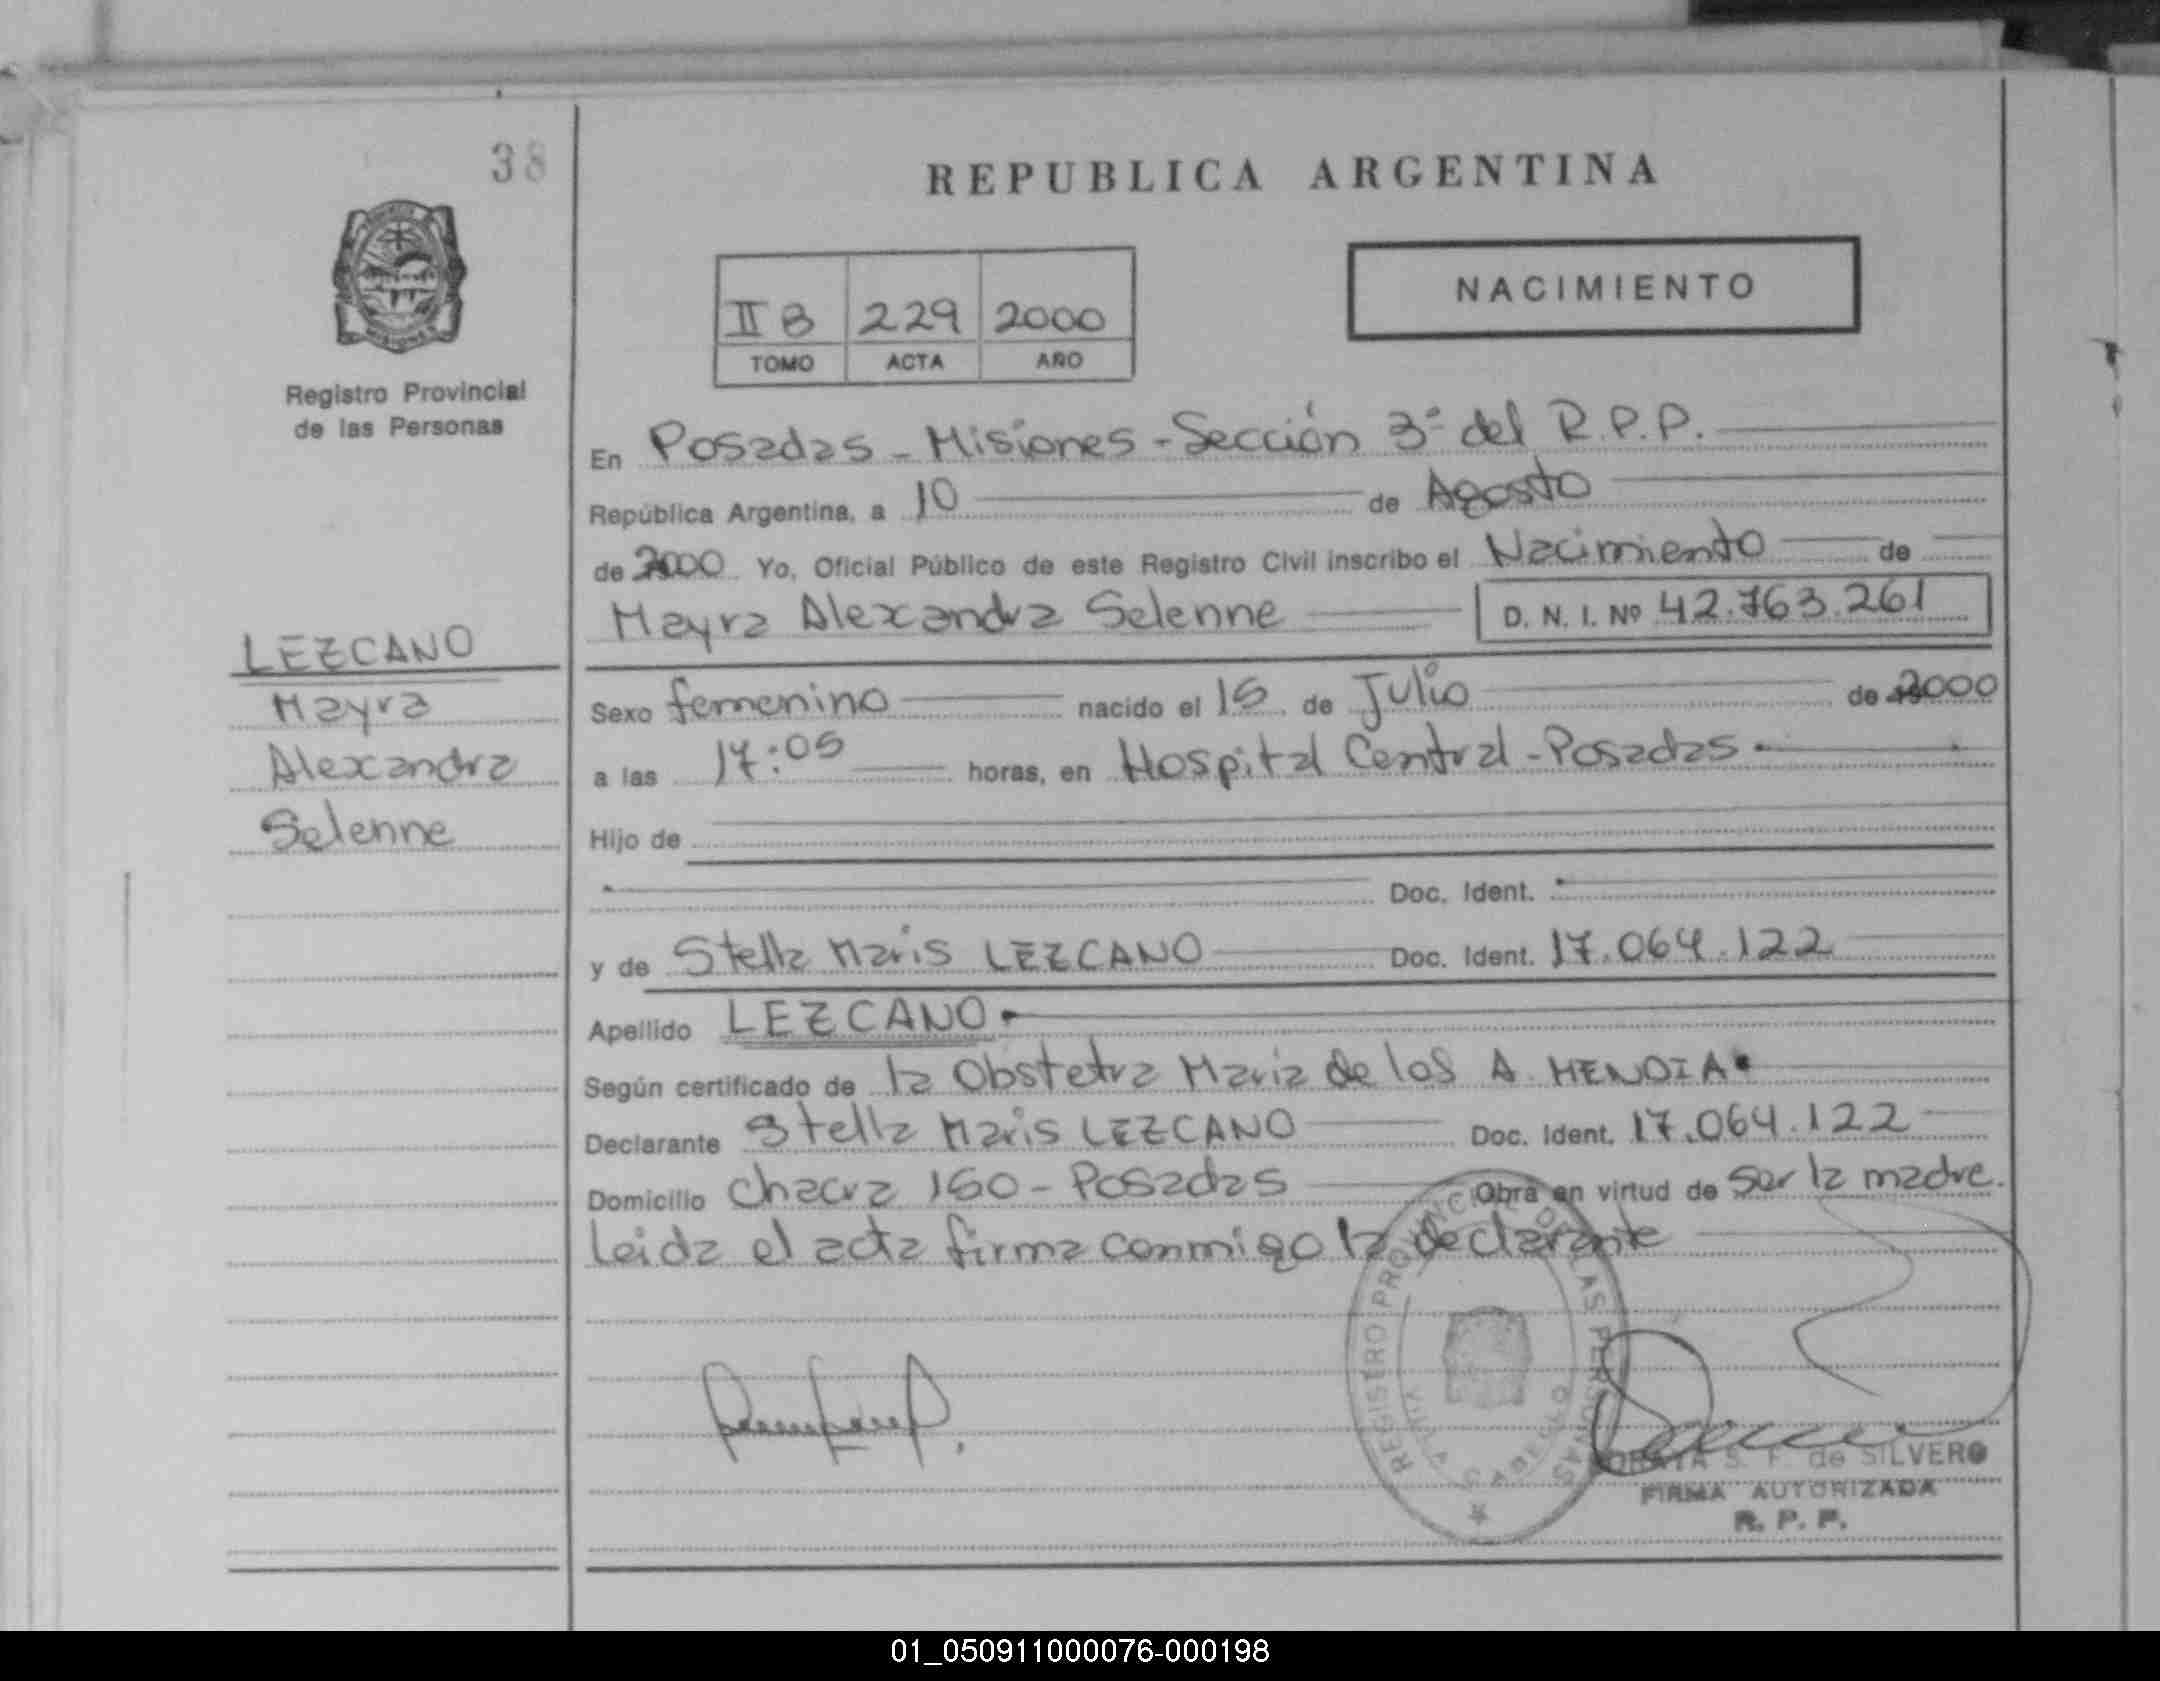 38
REPUBLICA ARGENTINA
NACIMIENTO
II B 229 2000
TOMO ACTA AÑO
Registro Provincial
de las Personas
En Posadas - Misiones - Sección 3ª del R.P.P.
República Argentina, a 10 de Agosto
de 2000 Yo, Oficial Público de este Registro Civil inscribo el Nacimiento de
Mayra Alexandra Selenne D. N. I. Nº 42.763.261
LEZCANO
Mayra
Alexandra
Selenne
Sexo femenino nacido el 15 de Julio de 2000
a las 17:05 horas, en Hospital Central - Posadas
Hijo de
Doc. Ident.
y de Stella Maris LEZCANO Doc. Ident. 17.064.122
Apellido LEZCANO
Según certificado de la Obstetra Maria de los A. MENDIA
Declarante Stella Maris LEZCANO Doc. Ident. 17.064.122
Domicilio Chacra 150 - Posadas Obra en virtud de ser la madre.
Leida el acta firma conmigo la declarante
REGISTRO PROVINCIAL DE LAS PERSONAS
S. F. de SILVERO
FIRMA AUTORIZADA
R. P. P.
01_050911000076-000198